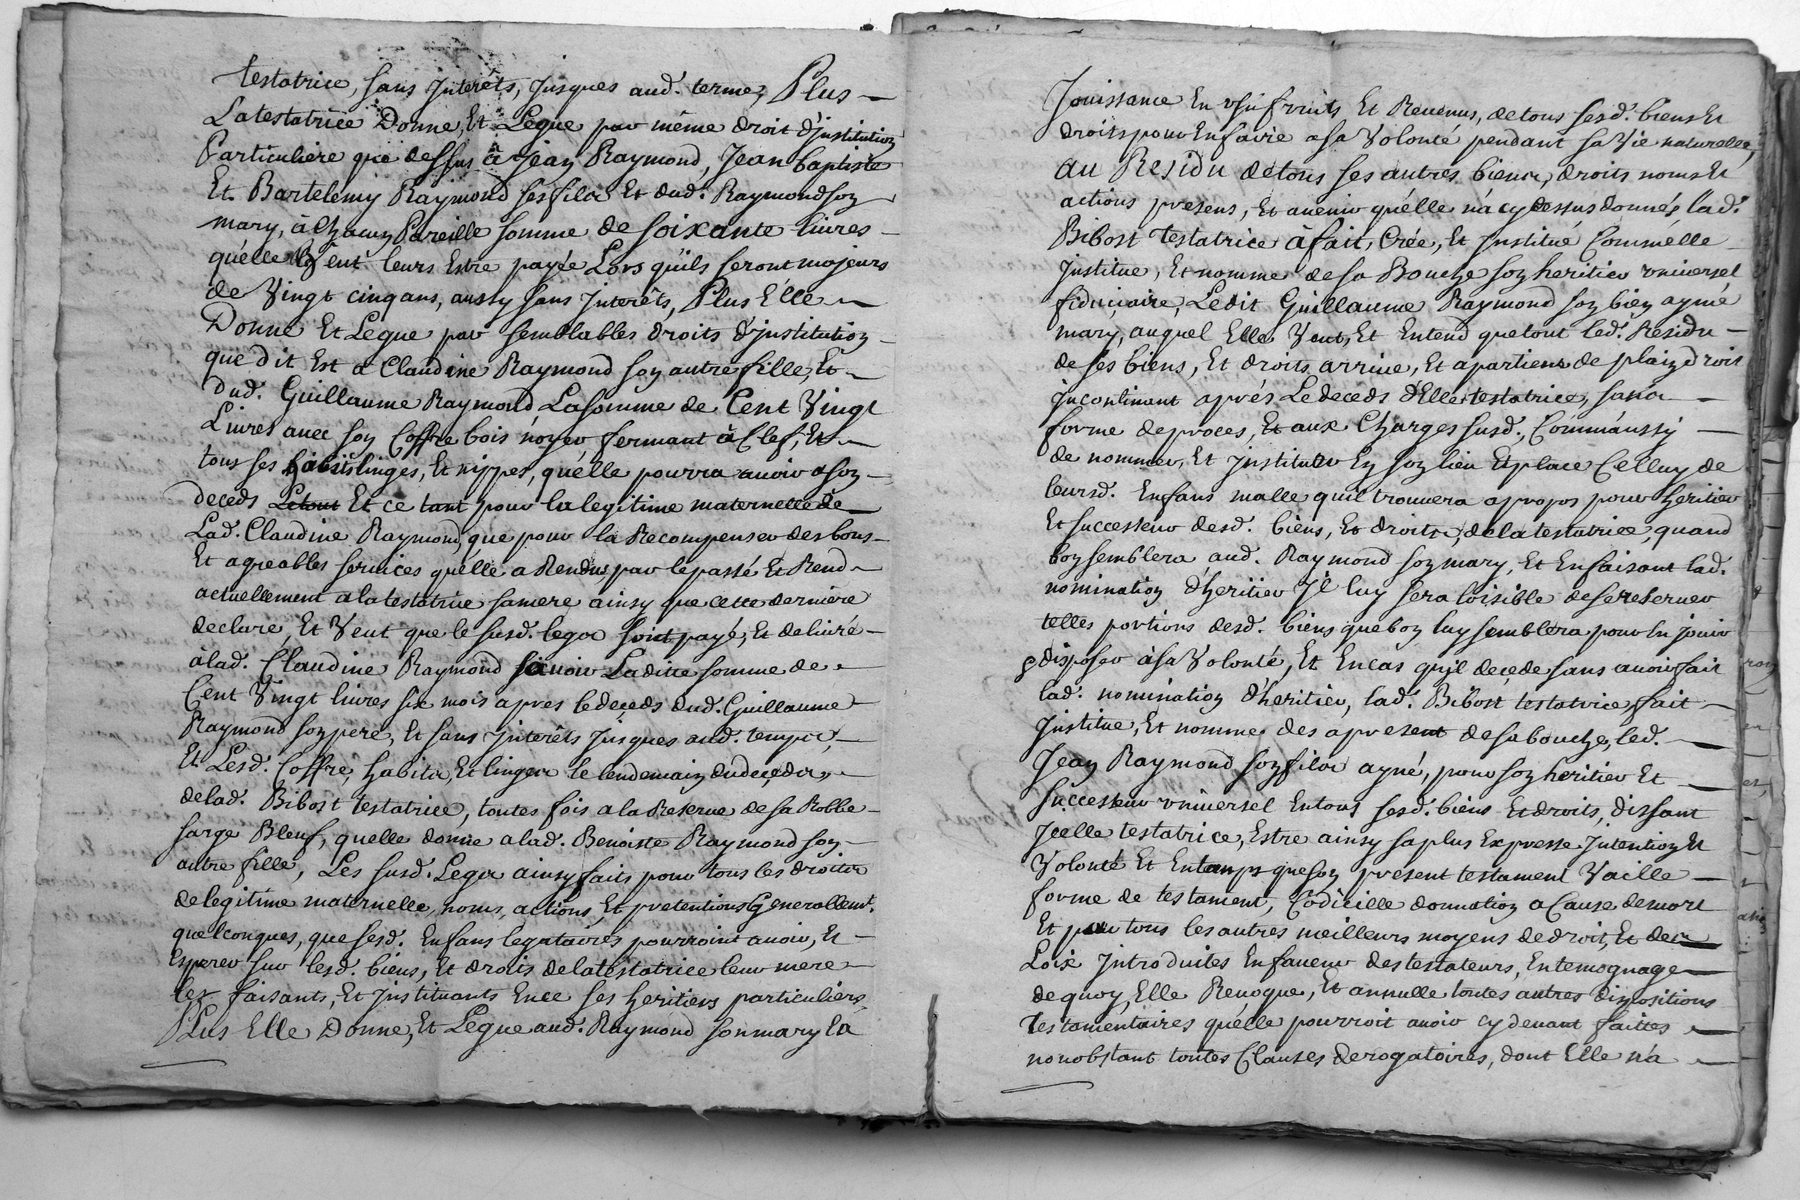 testatrice, sans Interêts, Jusques aud. terme, Plus
La testatrice Donne, Et Legue par même droit d'institution
Particuliere que dessus à Jean Raymond, Jean baptiste
Et Bartelemy Raymond ses fils Et dud. Raymond son
mary, à Chacun Pareille somme de soixante livres
qu'elle veut leurs Estre payée Lors qu'ils seront majeurs
de Vingt cinq ans, aussy sans Interêts, Plus Elle
Donne Et Legue par semblables droits d'institution
que dit Est a Claudine Raymond son autre fille, Et
Dud. Guillaume Raymond La somme de Cent Vingt
Livres avec son Coffre bois noyer fermant à Clef, Et
tous ses habits linges, Et nippes, qu'elle pourra avoir a son
deceds Le tout Et ce tant pour la legitime maternelle de
Lad. Claudine Raymond, que pour la Recompenser des bons
Et agreables services qu'elle a Rendus par le passé Et Rend
actuellement a la testatrice sa mere ainsy que cette derniere
declare, Et Veut que le susd. legs soit payé, Et delivré
à lad. Claudine Raymond scavoir Ladite somme de
Cent Vingt livres six mois apres le deceds dud. Guillaume
Raymond son pere, Et sans Interêts Jusques aud. temps,
Et Lesd. Coffre, habits, Et linges le lendemain du deceds
de lad. Bibost testatrice, toutes fois a la Reserve de sa Robbe
sarge Bleuf, quelle donne a lad. Benoiste Raymond son
autre fille, Les susd. Legs ainsy faits pour tous les droits
de legitime maternelle, noms, actions, Et pretentions Generallemt.
quelconques, que sesd. Enfans legataires pourroint avoir, Et
Esperer sur lesd. biens, Et droits de la testatrice leur mere
les faisants, Et Instituants Ence ses heritiers particuliers
PLus Elle Donne, Et Legue aud. Raymond son mary la
Jouissance En usufruits Et Revenus, de tous sesd. biens Et
droits pour En faire a sa Volonté pendant sa Vie naturelle,
Au Residu de tous ses autres biens, droits noms Et
actions presens, Et avenir qu'elle n'a cy dessus donnés lad.
Bibost Testatrice à fait, Crée, Et Institué Comme Elle
Institue, Et nomme de sa Bouche son heritier universel
fiduciaire, Ledit Guillaume Raymond son bien aymé
mary, auquel Elle Veut, Et Entend que tout led. Residu
de ses biens, Et droits arrive, Et apartiene de plain droit
incontinant aprés Le deceds d'Elle testatrice, sans
forme de proces, Et aux Charges susd., Comm'aussy
de nommer, Et Instituer En son lieu Et place Celluy de
leursd. Enfans malle qu'il trouvera apropos pour heritier
Et successeur desd. biens, Et droits de la testatrice, quand
bon semblera aud. Raymond son mary, Et En faisant lad.
nomination d'heritier Jl luy sera loisible de se reserver
telles portions desd. biens que bon luy semblera pour En jouir
& disposer à sa Volonté, Et En cas qu'il decede sans avoir fait
lad. nomination d'heritier, lad. Bibost testatrice, fait
Institue, Et nomme des apresent de sa bouche, led.
Jean Raymond son fils ayné, pour son heritier Et
successeur universel En tous sesd. biens Et droits, dissant
Jcelle testatrice, Estre ainsy sa plus Expresse Intention Et
Volonté Et Entemps que son present testament Vaille
forme de testament, Codicille donnation a Cause de mort
Et par tous les autres meilleurs moyens de droit, Et des
Loix Introduites En faveur des testateurs, En temognage
de quoy, Elle Revoque, Et annulle toutes autres dispositions
Testamentaires qu'elle pourroit avoir cy devant faittes
nonobstant toutes Clauses derogatoires, dont Elle n'a